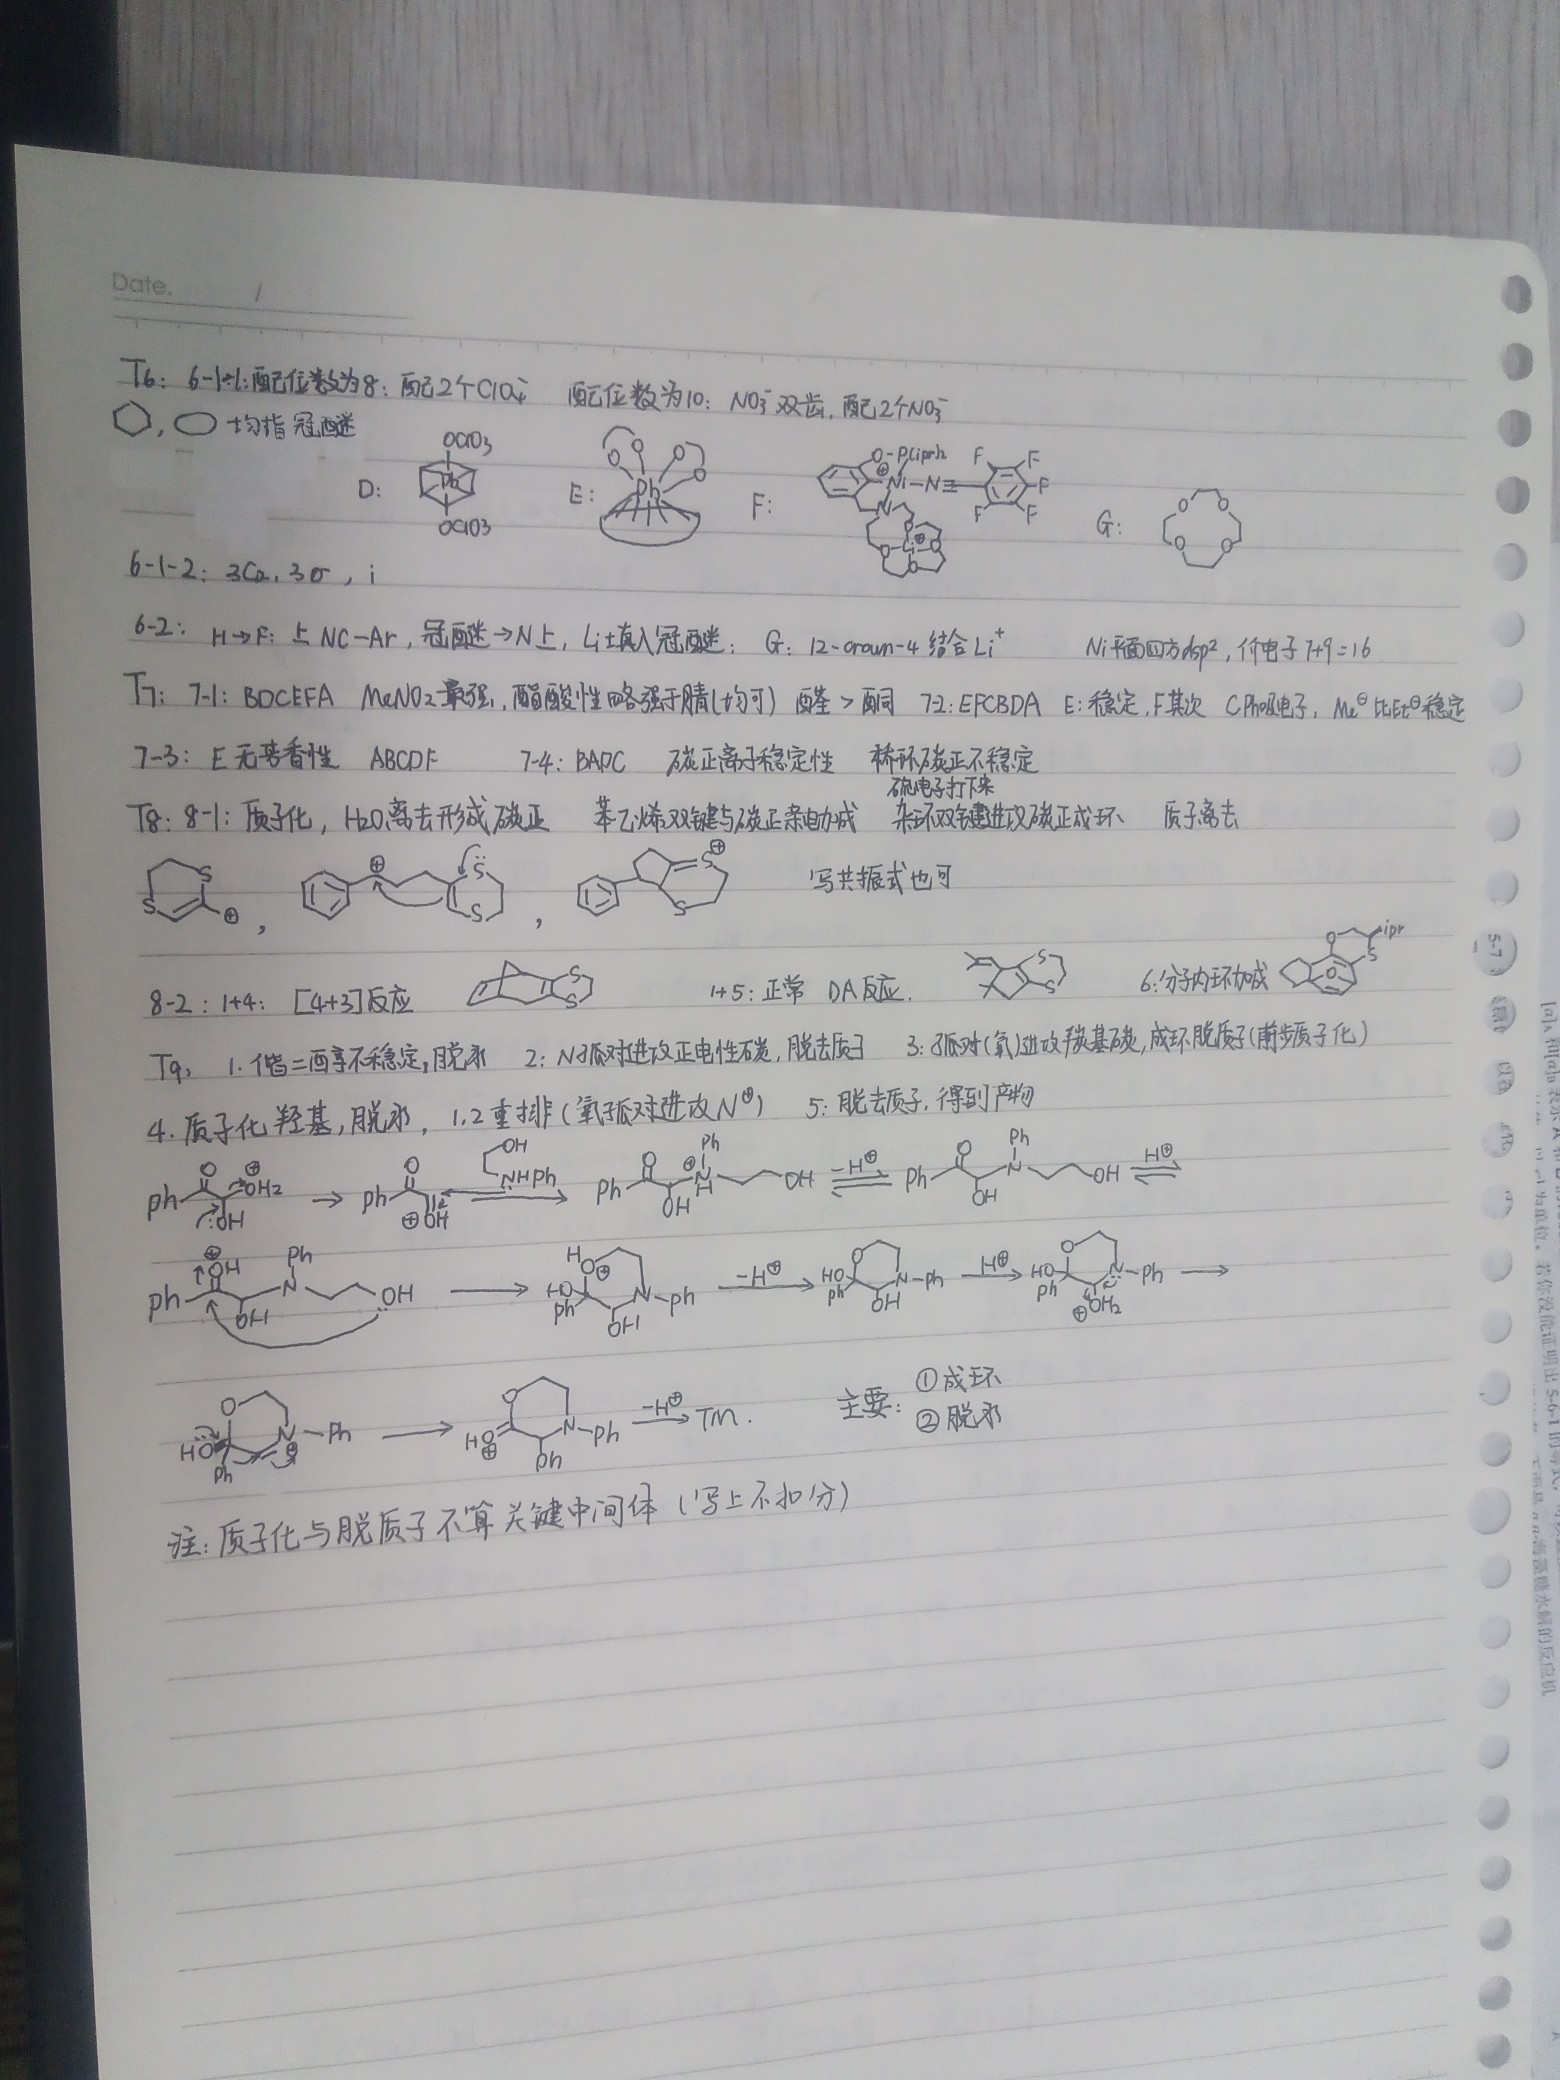 Date.
T6: 6-1-1: 配位数为8: 配2个ClO4- 配位数为10: NO3-双齿, 配2个NO3-
, 均指冠醚
D: OClO3 OClO3 E: O O O O F: O-P(ipr)2 ⊕ Ni-N≡ F F F F F G: O O O O
6-1-2: 3C2, 3σ, i
6-2: H→F: 上NC-Ar, 冠醚→N上, Li填入冠醚; G: 12-crown-4 结合Li+ Ni平面四方dsp2, 价电子7+9=16
T7: 7-1: BDCEFA MeNO2最强, 酯酸性略强于腈(均可) 醛>酮 7-2: EFCBDA E:稳定, F其次 CPh吸电子, Me⊖比Et⊖稳定
7-3: E无芳香性 ABCDF 7-4: BADC 碳正离子稳定性 桥环碳正不稳定
硫电子打下来
T8: 8-1: 质子化, H2O离去形成碳正 苯乙烯双键与碳正亲电加成 杂环双键进攻碳正成环 质子离去
S S ⊕, ⊕ S S, S⊕ S 写共振式也可
8-2: 1+4: [4+3]反应 S S 1+5: 正常DA反应. S S 6:分子内环加成 O ipr S
T9, 1. 偕二醇不稳定, 脱水 2: N孤对进攻正电性碳, 脱去质子 3: 孤对(氧)进攻羰基碳, 成环脱质子(前步质子化)
4. 质子化羟基, 脱水, 1,2重排(氧孤对进攻N⊕) 5: 脱去质子, 得到产物
Ph O ⊕OH2 OH → Ph O ⊕OH OH NHPh Ph O OH ⊕N H Ph OH -H⊕ Ph O OH N Ph OH H⊕
Ph ⊕OH OH N Ph OH → HO⊕ HO Ph OH N-Ph -H⊕ → O HO Ph OH N-Ph H⊕ → O HO Ph ⊕OH2 N-Ph →
O HO Ph N⊕-Ph → O HO⊕ Ph N-Ph -H⊕ → TM. 主要: ①成环
②脱水
注: 质子化与脱质子不算关键中间体 (写上不扣分)